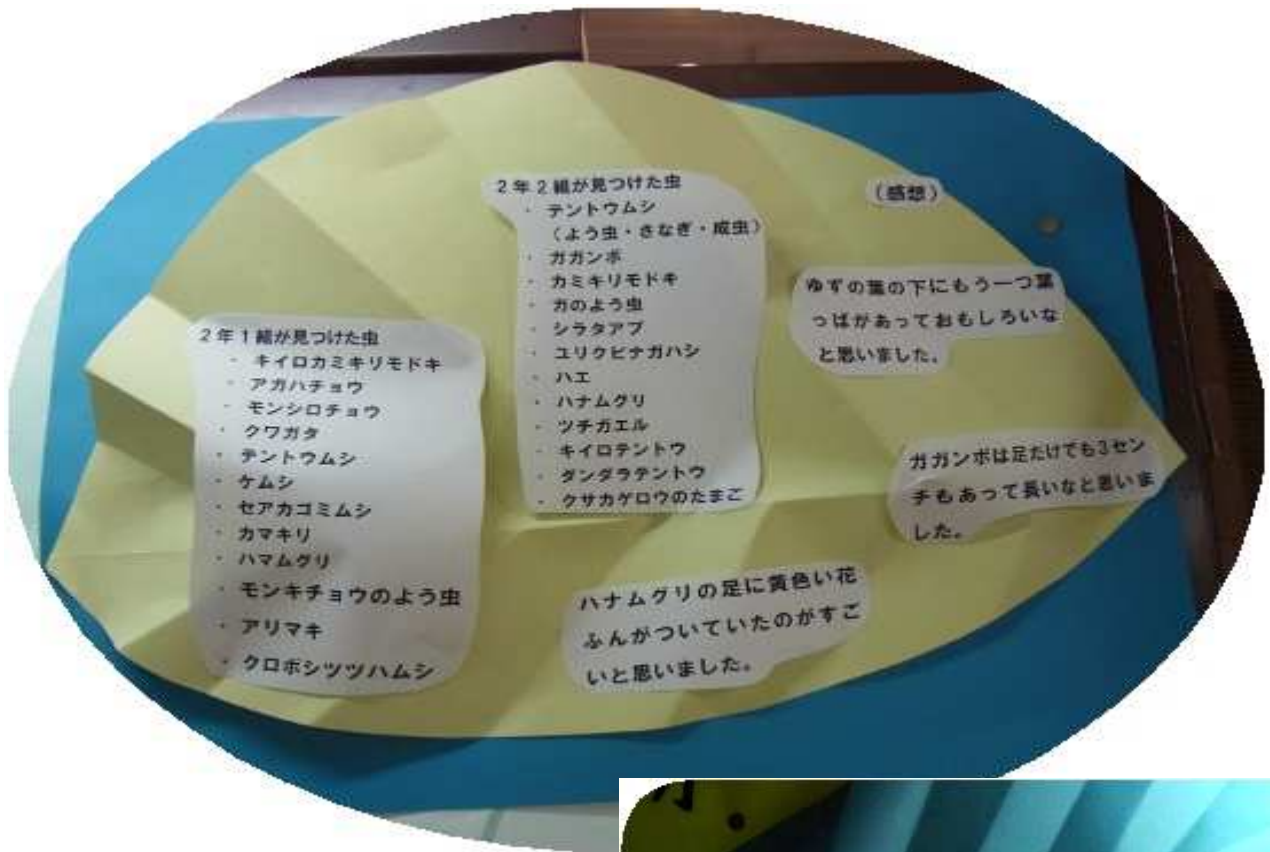 2年1組が見つけた虫
・ キイロカミキリモドキ
・ アガハチョウ
・ モンシロチョウ
・ クワガタ
・ テントウムシ
・ ケムシ
・ セアカゴミムシ
・ カマキリ
・ ハマムグリ
・ モンキチョウのよう虫
・ アリマキ
・ クロボシツツハムシ
2年2組が見つけた虫
・ テントウムシ
（よう虫・さなぎ・成虫）
・ ガガンボ
・ カミキリモドキ
・ カのよう虫
・ シラタアブ
・ ユリクビナガハシ
・ ハエ
・ ハナムグリ
・ ツチガエル
・ キイロテントウ
・ ダンダラテントウ
・ クサカゲロウのたまご
（感想）
ゆずの葉の下にもう一つ葉
っぱがあっておもしろいな
と思いました。
ガガンボは足だけでも3セン
チもあって長いなと思いま
した。
ハナムグリの足に黄色い花
ふんがついていたのがすご
いと思いました。